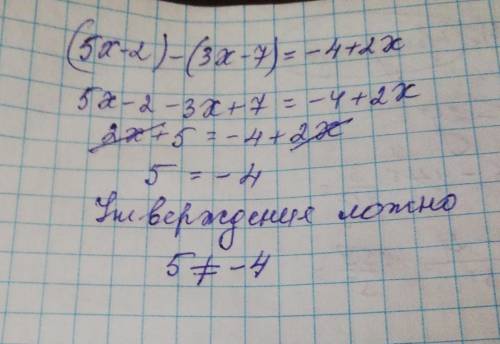 (5x-2)-(3x-7)=-4+2x
5x-2-3x+7=-4+2x
2x+5=-4+2x
5=-4
Утверждение ложно
5≠-4